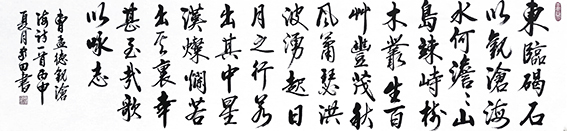 東臨碣石
以觀滄海
水何澹〻山
島竦峙樹
木叢生百
艸豐茂秋
風蕭瑟洪
波湧起日
月之行若
出其中星
漢燦爛若
出其裏幸
甚至哉歌
以詠志
曹孟德觀滄
海詩一首丙申
夏月田書